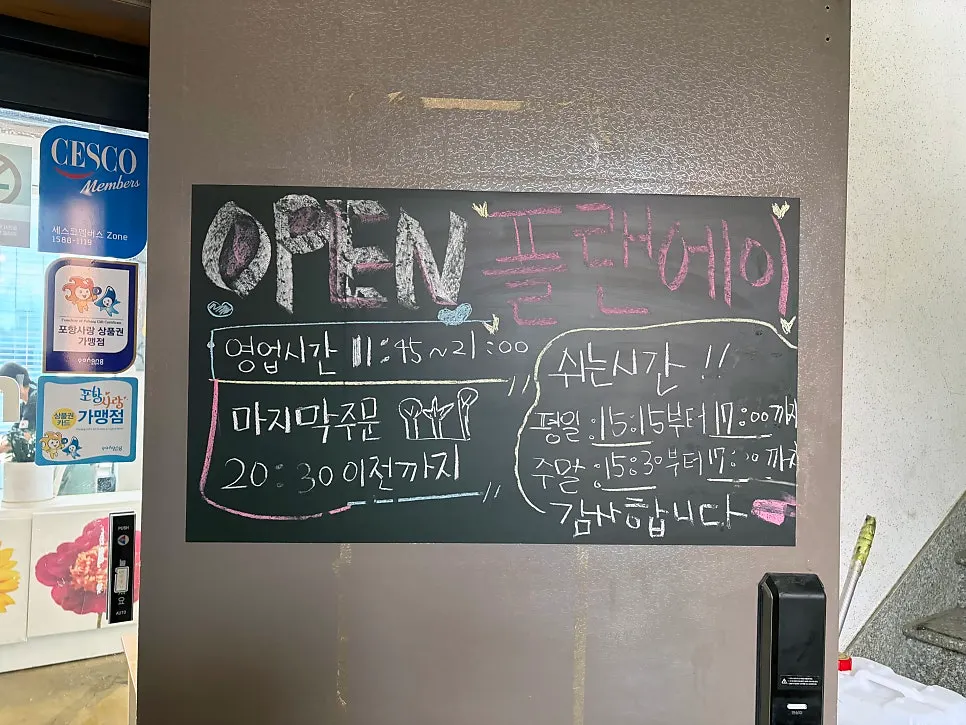 CESCO
Members
세스코멤버스 Zone
1588-1119
포항사랑 상품권
가맹점
포항
사랑
상품권
카드
가맹점
OPEN 플랜에이
영업시간 11:45~21:00
마지막주문
20:30 이전까지
쉬는시간 !!
평일:15:15부터 17:00까지
주말:15:30부터 17:00까지
감사합니다
PUSH
AUTO